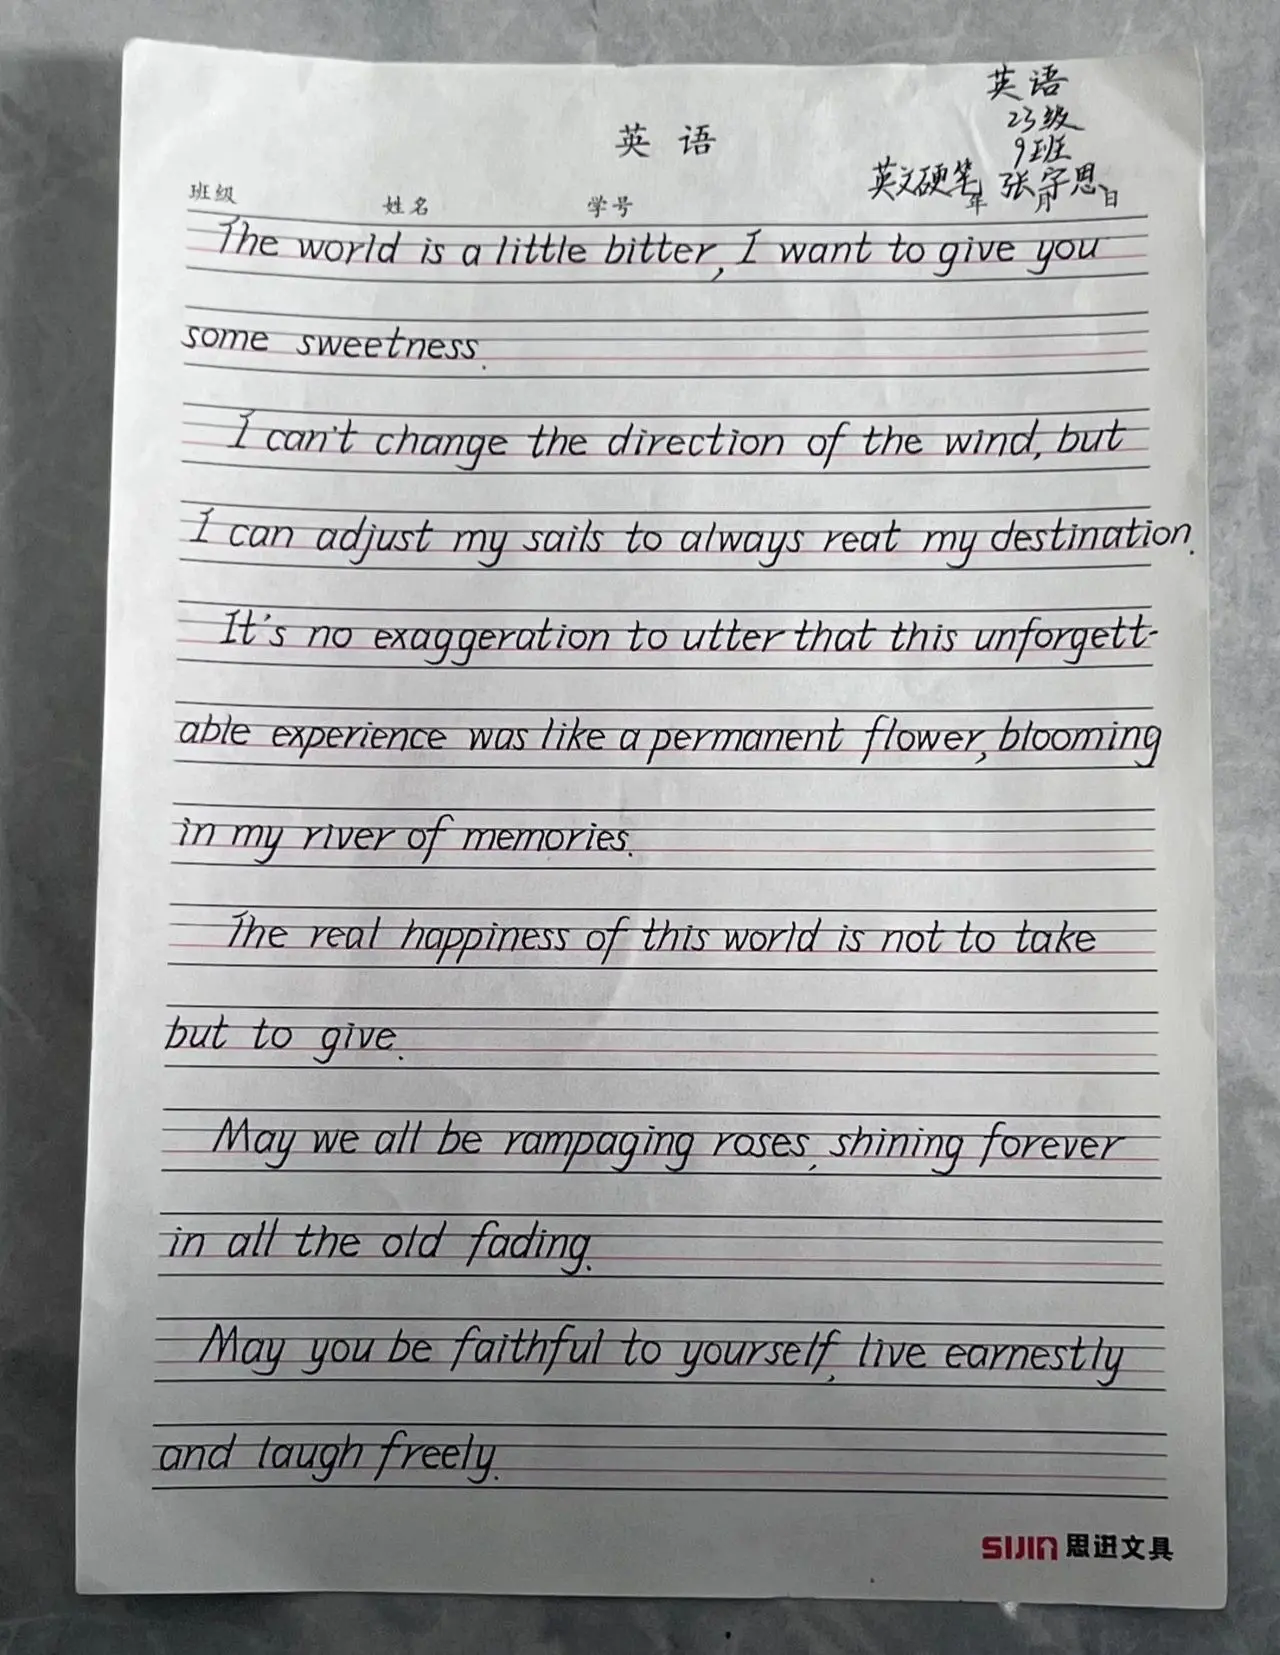 英语
23级
9班
英语
英文硬笔 张宇思
班级 姓名 学号 年 月 日
The world is a little bitter, I want to give you
some sweetness.
I can't change the direction of the wind, but
I can adjust my sails to always reat my destination.
It's no exaggeration to utter that this unforgett-
able experience was like a permanent flower, blooming
in my river of memories.
The real happiness of this world is not to take
but to give.
May we all be rampaging roses, shining forever
in all the old fading.
May you be faithful to yourself, live earnestly
and laugh freely.
SIJIN 思进文具